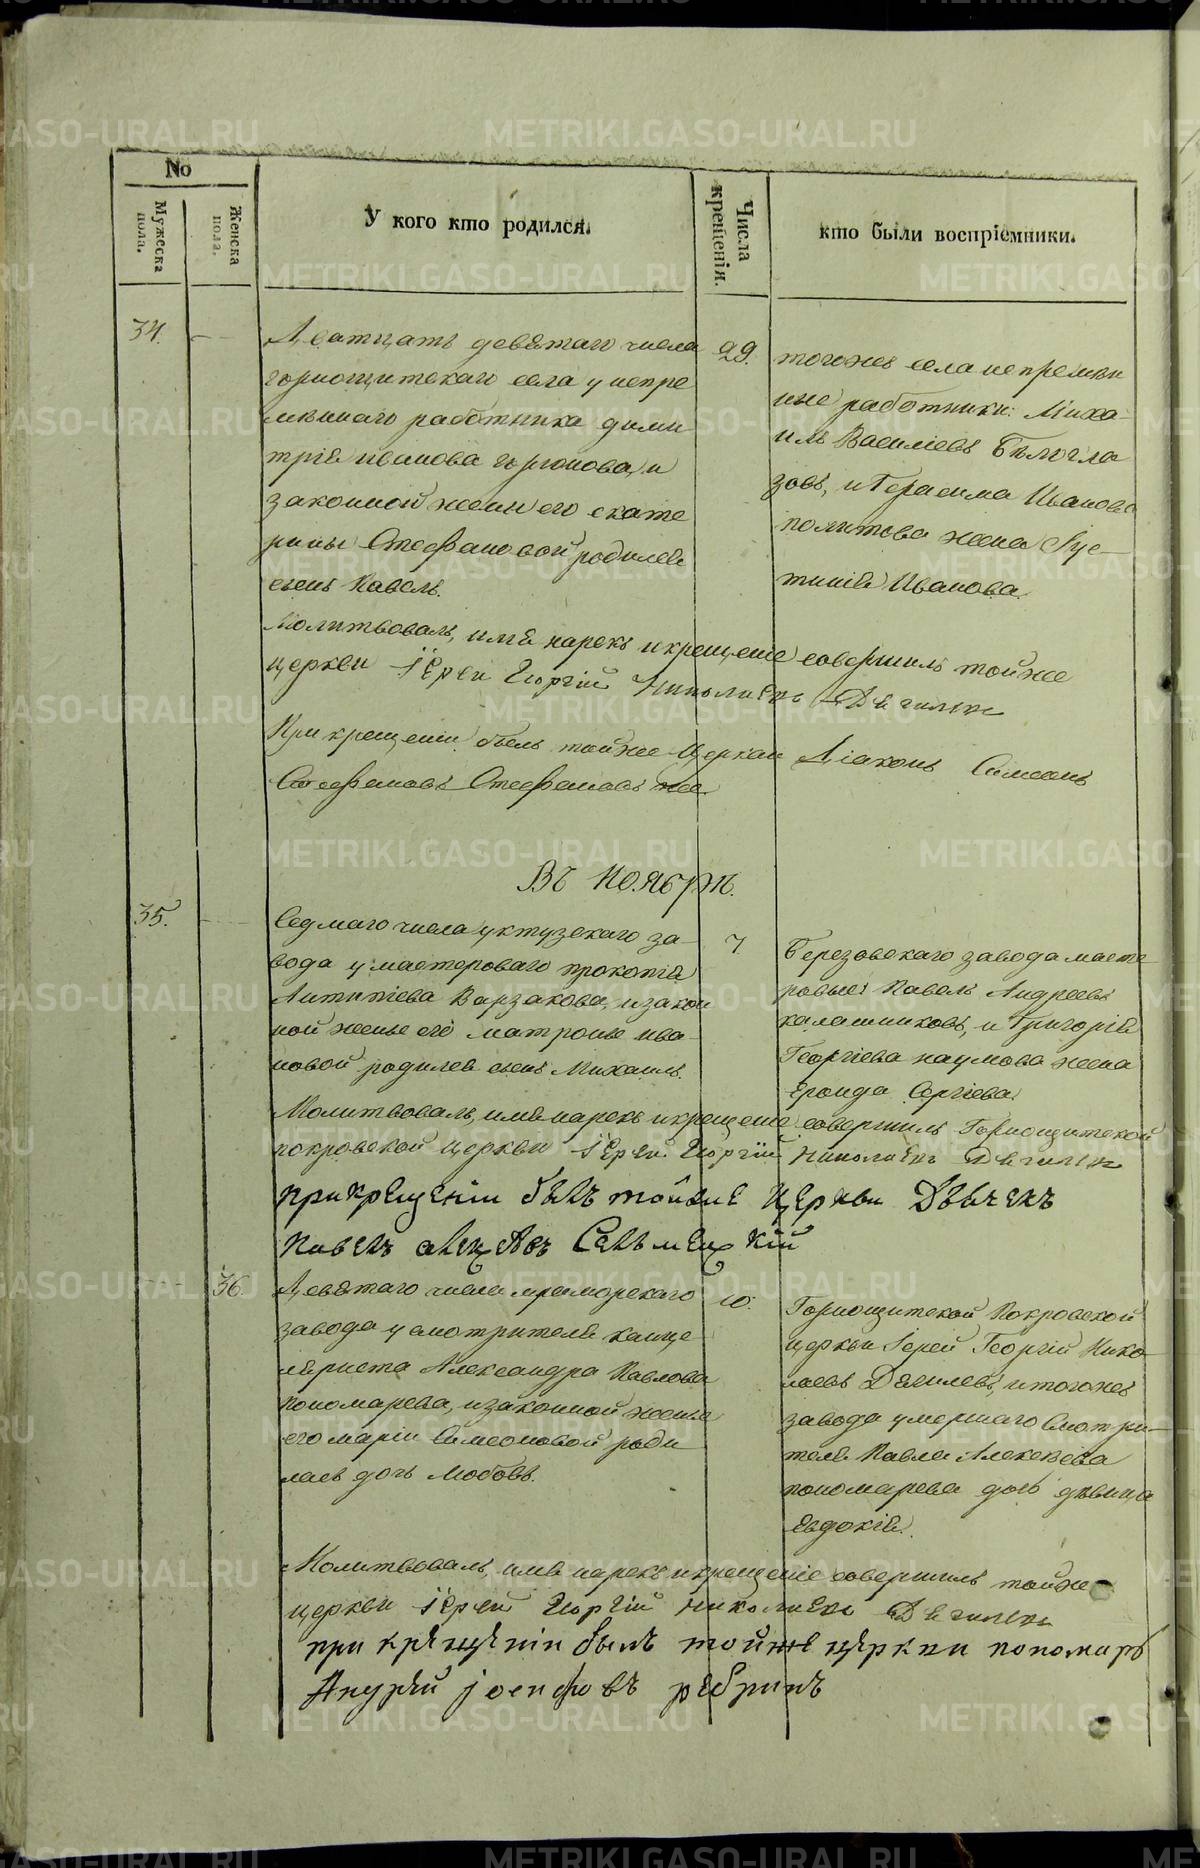 No
Мужеска пола.
Женска пола.
У кого кто родился.
Числа крещенія.
кто были воспріемники.
34.
Дватцать девятаго числа
горнощитскаго села у непре
меннаго работника дими
трія иванова горюнова, и
законной жены его екате
рины Стефановой родился
сынъ Павелъ.
29.
тогожъ села непремен
ные работники: Миха-
илъ Василіевъ Бѣлогла
зовъ, и Герасима Иванова
политова жена Іус-
тинія Иванова.
Молитвовалъ, имя нарекъ и крещеніе совершилъ тойже
церкви іерей Георгій Николаевъ Дягилевъ
При крещеніи былъ тойже Церкви Діаконъ Симеонъ
Стефановъ Стефановъ же.
Въ Ноябрѣ.
35.
Седмаго числа уктузскаго за-
вода у мастероваго прокопія
Антипіева Варзакова, и закон
ной жены его матроны ива-
новой родился сынъ Михаилъ.
7.
Березовскаго завода масте
ровые: Павелъ Андреевъ
калашниковъ, и Григорія
Георгіева наумова жена
Сергіева.
Молитвовалъ, имя нарекъ и крещеніе совершилъ Горнощитской
покровской церкви іерей Георгій Николаевъ Дягилевъ
при крещеніи былъ тойже церкви Дьячекъ
Павелъ
36.
Девятаго числа мраморскаго
завода у смотрителя канце
ляриста Александра Павлова
пономарева, и законной жены
его маріи Симеоновой роди
лась дочь Любовь.
10.
Горнощитской Покровской
церкви Іерей Георгій Нико-
лаевъ Дягилевъ, и тогожъ
завода умершаго Смотри-
теля Павла Алексѣева
пономарева дочь дѣвица
Евдокія.
Молитвовалъ, имя нарекъ и крещеніе совершилъ тойже
церкви іерей Георгій Николаевъ Дягилевъ
при крещеніи былъ тойже церкви пономарь
Андрей іосифовъ ребринъ
METRIKI.GASO-URAL.RU